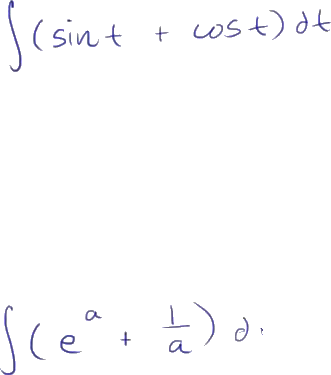 ∫(sint + cost)dt
∫(e^a + 1/a) d